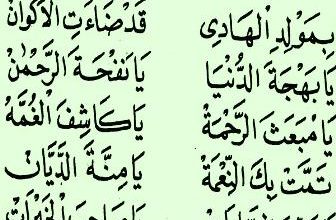 بِمَوْلِدِ الْهَادِى قَدْ ضَاءَتِ الْأَكْوَانْ
يَا بَهْجَةَ الدُّنْيَا يَا نَفْحَةَ الرَّحْمٰنْ
يَا مَبْعَثَ الرَّحْمَةْ يَا كَاشِفَ الْغُمَّةْ
تَمَّتْ بِكَ النِّعْمَةْ يَا مِنَّةَ الدَّيَّانْ